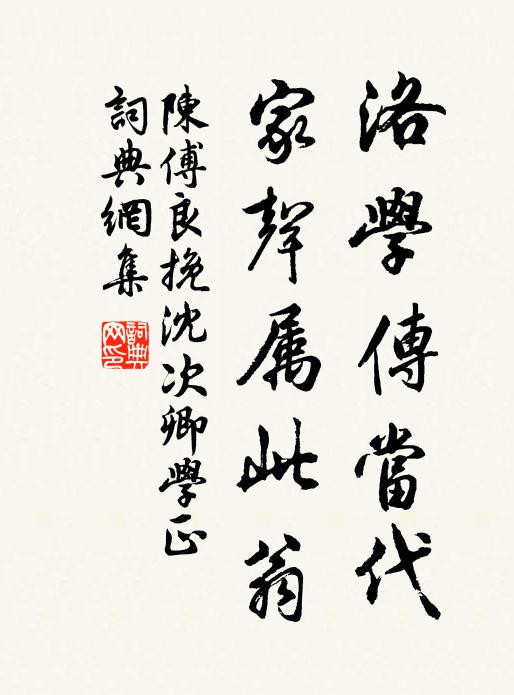 洛學傳當代
家聲属此翁
陳傅良挽沈次卿學正
詞典網集
詞典网印